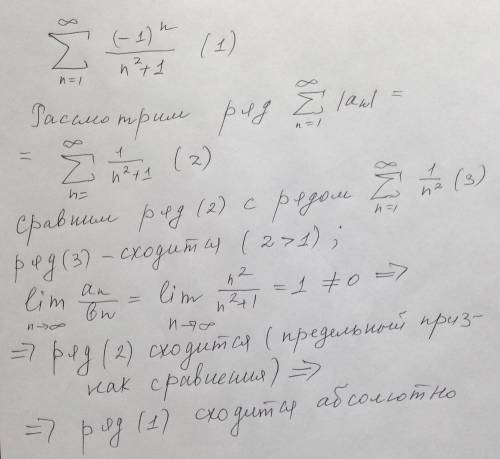 ∞
∑ (-1)^n / (n²+1) (1)
n=1
Рассмотрим ряд ∑_{n=1}^{∞} |aₙ| =
= ∑_{n=}^{∞} 1/(n²+1) (2)
сравним ряд (2) с рядом ∑_{n=1}^{∞} 1/n² (3)
ряд (3) – сходится (2>1);
lim_{n→∞} aₙ/bₙ = lim_{n→∞} n²/(n²+1) = 1 ≠ 0 ⇒
⇒ ряд (2) сходится (предельный приз-
нак сравнения) ⇒
⇒ ряд (1) сходится абсолютно